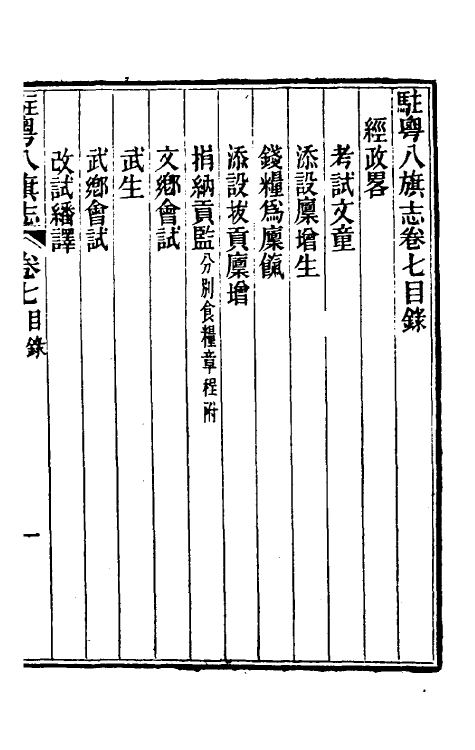 駐粵八旗志卷七目錄
經政畧
考試文童
添設廩增生
錢糧爲廩餼
添設拔貢廩增
捐納貢監分別食糧章程附
文鄉會試
武生
武鄉會試
改試繙譯
駐粵八旗志 卷七目錄 一